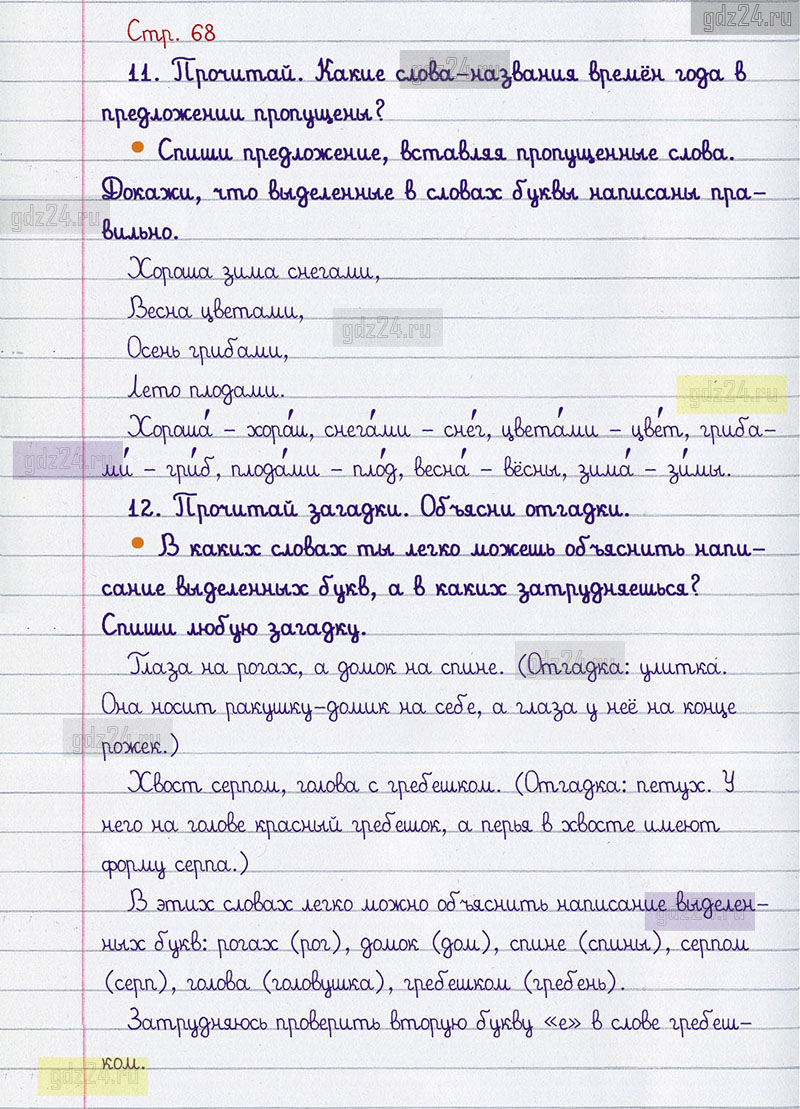 gdz24.ru
Стр. 68
11. Прочитай. Какие слова-названия времён года в
gdz24.ru
предложении пропущены?
• Спиши предложение, вставляя пропущенные слова.
Докажи, что выделенные в словах буквы написаны пра-
gdz24.ru
вильно.
Хороша зима снегами,
Весна цветами,
gdz24.ru
Осень грибами,
Лето плодами.
gdz24.ru
Хороша́ - хоро́ш, снега́ми - сне́г, цвета́ми - цве́т, гриба-
gdz24.ru
ми́ - гри́б, плода́ми - пло́д, весна́ - вёсны, зима́ - зи́мы.
12. Прочитай загадки. Объясни отгадки.
• В каких словах ты легко можешь объяснить напи-
сание выделенных букв, а в каких затрудняешься?
Спиши любую загадку.
Глаза на рогах, а домок на спине. (Отгадка: улитка.
gdz24.ru
Она носит ракушку-домик на себе, а глаза у неё на конце
gdz24.ru
рожек.)
Хвост серпом, голова с гребешком. (Отгадка: петух. У
него на голове красный гребешок, а перья в хвосте имеют
форму серпа.)
В этих словах легко можно объяснить написание выделен-
gdz24.ru
ных букв: рогах (рог), домок (дом), спине (спины), серпом
(серп), голова (головушка), гребешком (гребень).
Затрудняюсь проверить вторую букву «е» в слове гребеш-
ком.
gdz24.ru